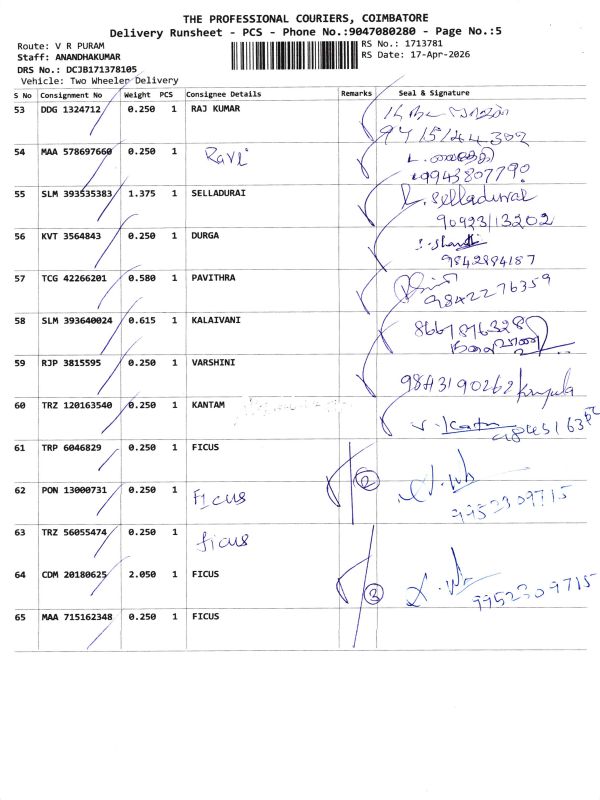 THE PROFESSIONAL COURIERS, COIMBATORE
Delivery Runsheet - PCS - Phone No.:9047080280 - Page No.:5
Route: V R PURAM
RS No.: 1713781
Staff: ANANDHAKUMAR
RS Date: 17-Apr-2026
DRS No.: DCJB171378105
Vehicle: Two Wheeler Delivery
S No Consignment No Weight PCS Consignee Details Remarks Seal & Signature
53 DDG 1324712 0.250 1 RAJ KUMAR
54 MAA 578697660 0.250 1 Ravi
9943807790
55 SLM 393535383 1.375 1 SELLADURAI R. Selladurai
90923/13202
56 KVT 3564843 0.250 1 DURGA
9842884187
57 TCG 42266201 0.580 1 PAVITHRA
9842276359
58 SLM 393640024 0.615 1 KALAIVANI
59 RJP 3815595 0.250 1 VARSHINI
9843190262
60 TRZ 120163540 0.250 1 KANTAM
61 TRP 6046829 0.250 1 FICUS 2
62 PON 13000731 0.250 1 Ficus
9952309715
63 TRZ 56055474 0.250 1 ficus
64 CDM 20180625 2.050 1 FICUS 3
9952309715
65 MAA 715162348 0.250 1 FICUS